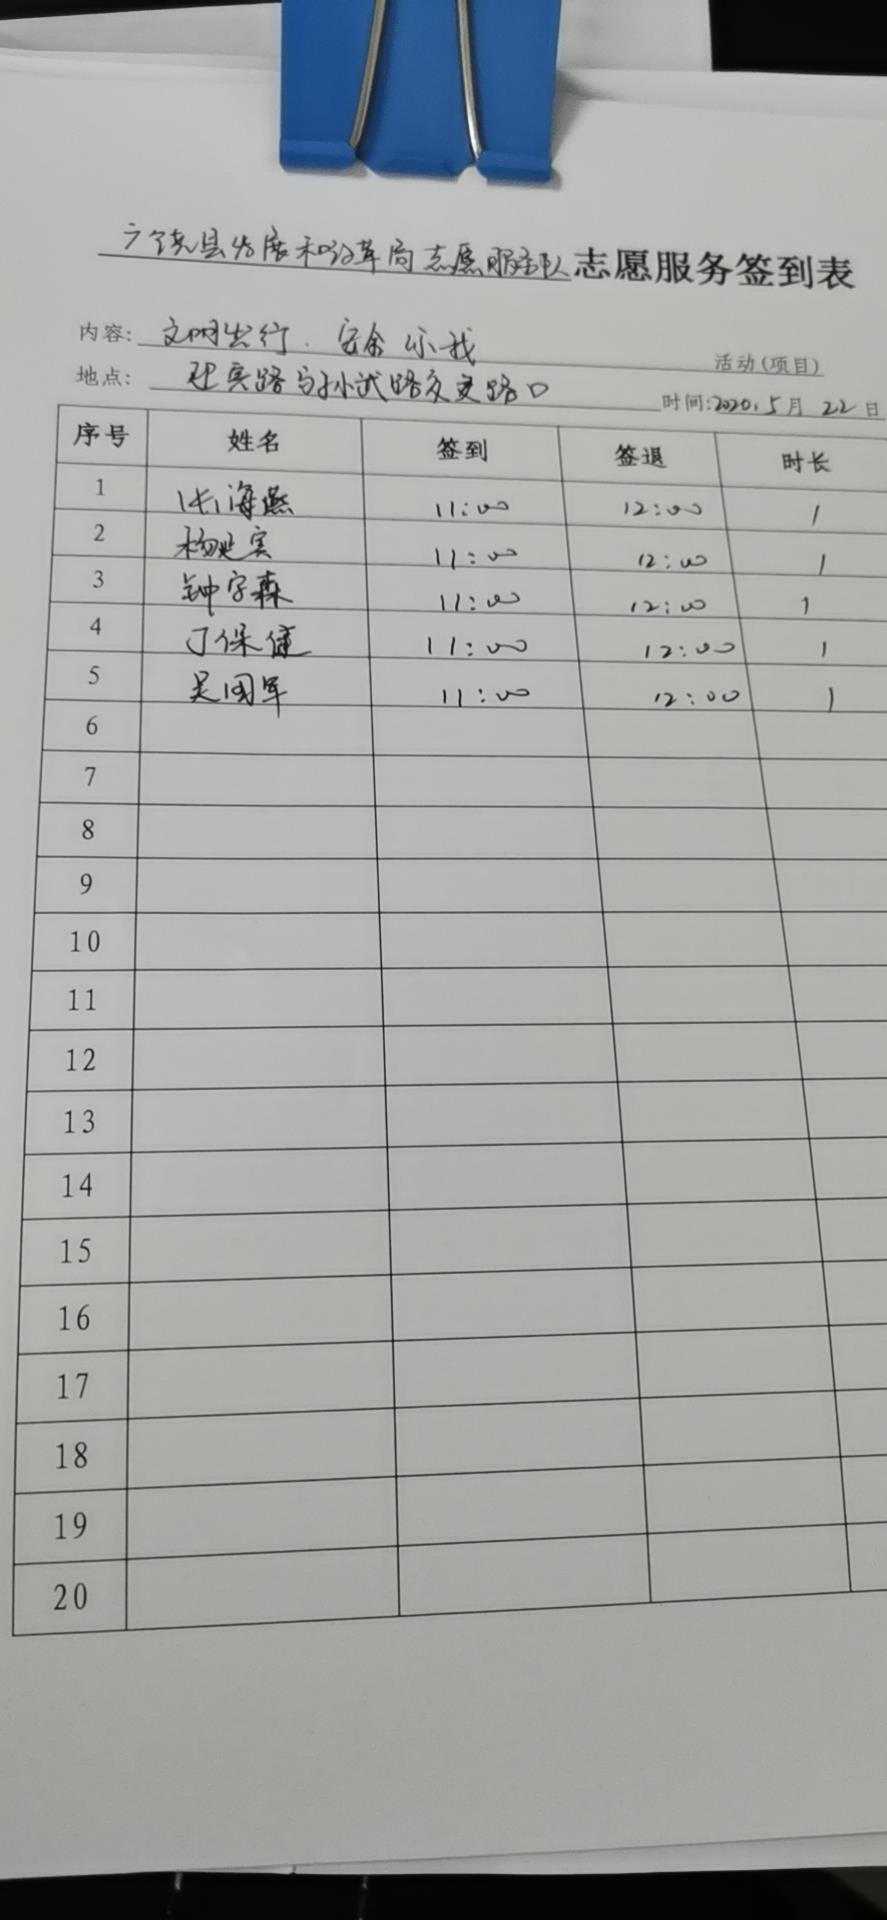 广饶县发展和改革局志愿服务队志愿服务签到表
内容: 文明出行.安全你我 活动(项目)
地点: 与孙武路交叉路口 时间:2020.5月22日
序号 姓名 签到 签退 时长
1 海燕 11:00 12:00 1
2 杨 11:00 12:00 1
3 钟宇森 11:00 12:00 1
4 丁保健 11:00 12:00 1
5 吴国军 11:00 12:00 1
6
7
8
9
10
11
12
13
14
15
16
17
18
19
20